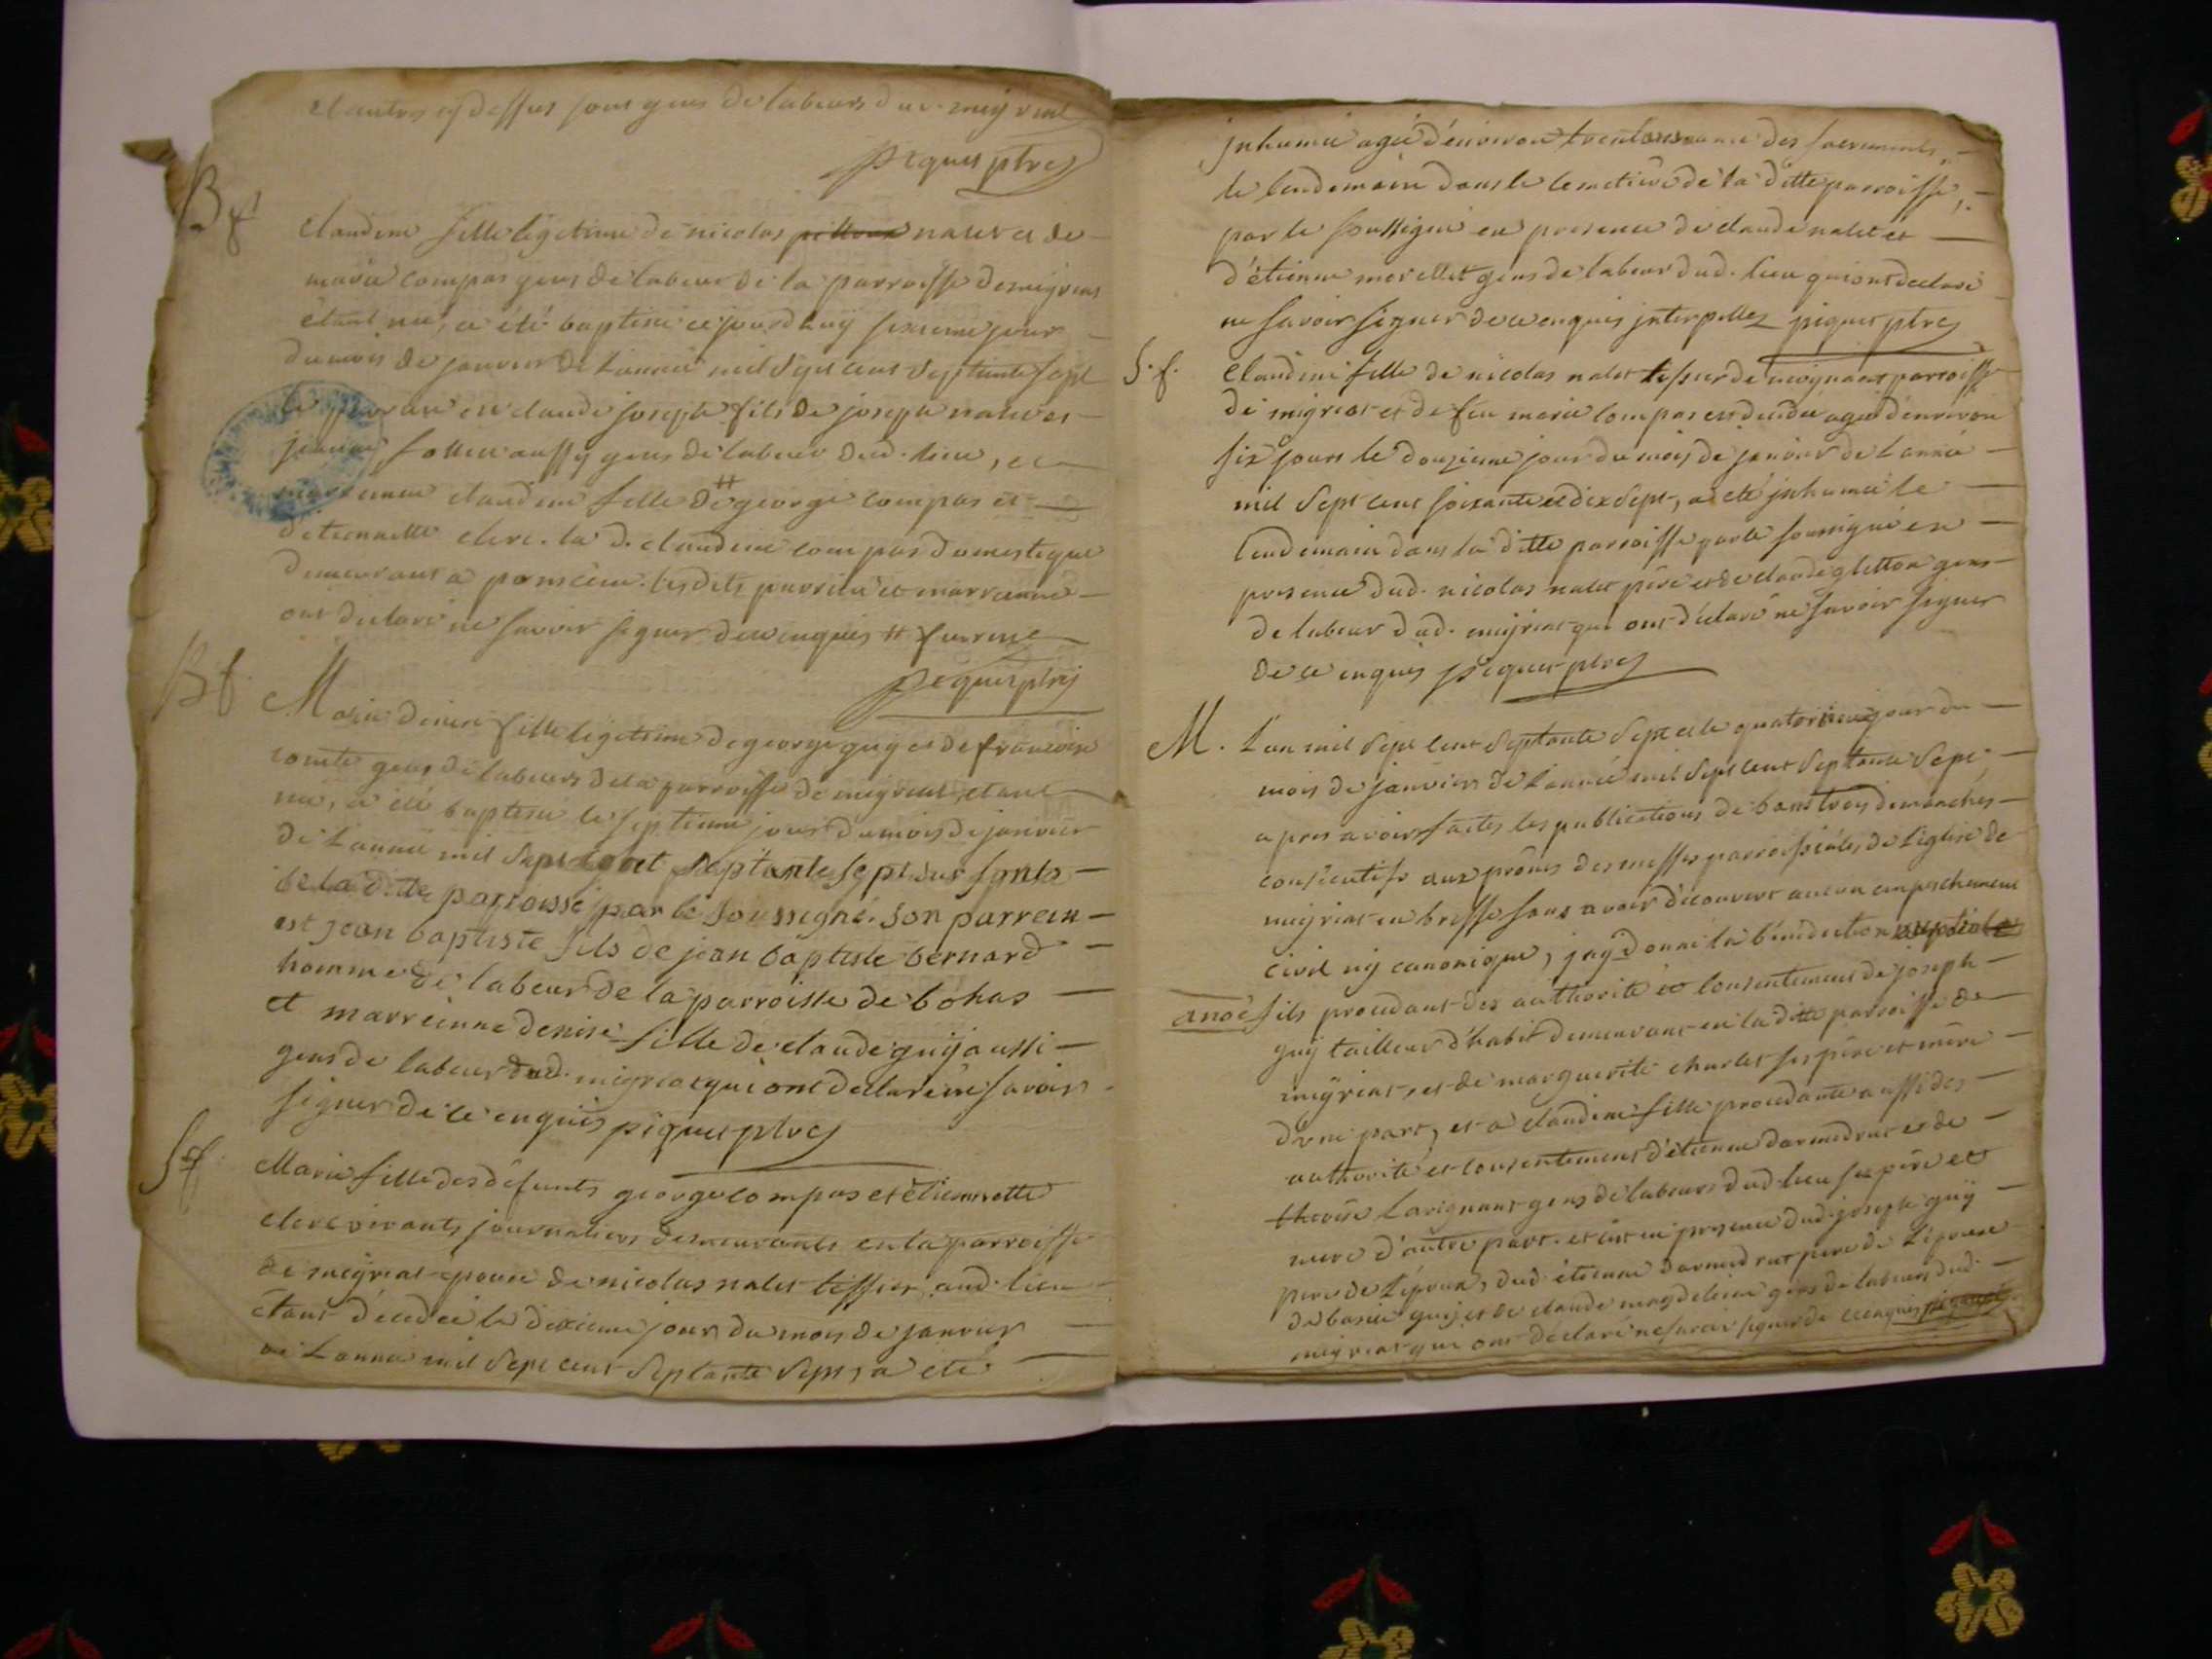 et autres cy dessus sont gens de labeurs dud. meyriat
piquet ptre
Bf
Claudine fille légetime de nicolas nalet et de
marie compas gens de labeur de la parroisse de meyriat
étant née, a été baptisée ce jourdhuÿ sixieme jour
du mois de janvier de l'année mil sept cent septente sept
le parrain est claude joseph fils de joseph nalet et
aussy gens de labeur dud. lieu, et
marrienne claudine fille de # george compas et
d'étiennette clerc. la d. claudine compas domestique
demeurant a lesdits parrein et marrienne
ont déclaré ne savoir signer de ce enquis # furent
piquet ptre
Bf.
Marie denise fille legetime de george guÿ et de françoise
comte gens de labeurs de la parroisse de meyriat, étant
née, a été baptisée le septieme jour du mois de janvier
de l'année mil sept cent septante sept sur fonts
de la d. te parroisse par le soussigné. son parrein
est jean baptiste fils de jean baptiste bernard
homme de labeur de la parroisse de bohas
et marreinne denise fille de claude guÿ aussi
gens de labeur dud. migreat qui ont déclaré ne savoir
signer de ce enquis piquet ptre
Sf.
Marie fille des défunts george compas et étiennette
clerc vivants journaliers demeurants en la parroisse
de meyriat épouse de nicolas nalet tissier aud. lieu
étant décédée le dixieme jour du mois de janvier
de l'année mil sept cent septante sept, a été
jnhumée agée d'environ trente des sacrements,
le lendemain dans le cemetiere de la ditte parroisse,
par le soussigné en presence de claude nalet et
d'étienne morellet gens de labeur dud. lieu qui ont declaré
ne savoir signer de ce enquis jnterpellez piquet ptre
S. f.
Claudine fille de nicolas nalet tissier de parroisse
de migreat et de feu marie compas est décédée agée d'environ
six jours le douzieme jour du mois de janvier de l'année
mil sept cent soixante et dix sept, a été jnhumée le
lendemain dans la ditte parroisse par le soussigné en
presence dud. nicolas nalet père et de claude gletton gens
de labeur dud. meÿriat qui ont déclaré ne savoir signer
de ce enquis piquet ptre
M. L'an mil sept cent septante sept et le quatorzieme jour du
mois de janvier de l'année mil sept cent septante sept
apres avoir faites les publications de bans trois dimanches
consécutifs aux prônes des messes parroissiales de l'église de
meyriat en bresse sans avoir découvert aucun empechement
civil nÿ canonique, jaÿ donné la bénédiction nuptiale
a noé fils procédant des authorité et consentement de joseph
guÿ tailleur d'habit demeurant en la ditte parroisse de
meÿriat, et de marguerite charlet ses père et mère
d'une part, et a claudine fille procédante aussi des
authorité et consentement d'étienne darmedrut et de
therese Lavignant gens de labeurs dud. lieu ses père et
mere d'autre part. et ce en presence dud. joseph guÿ
pere de l'époux, dud. étienne darmedrut pere de l'épouse
de guÿ et de claude magdeleine gens de labeurs dud.
meÿriat qui ont déclaré ne savoir signer de ce enquis piquet